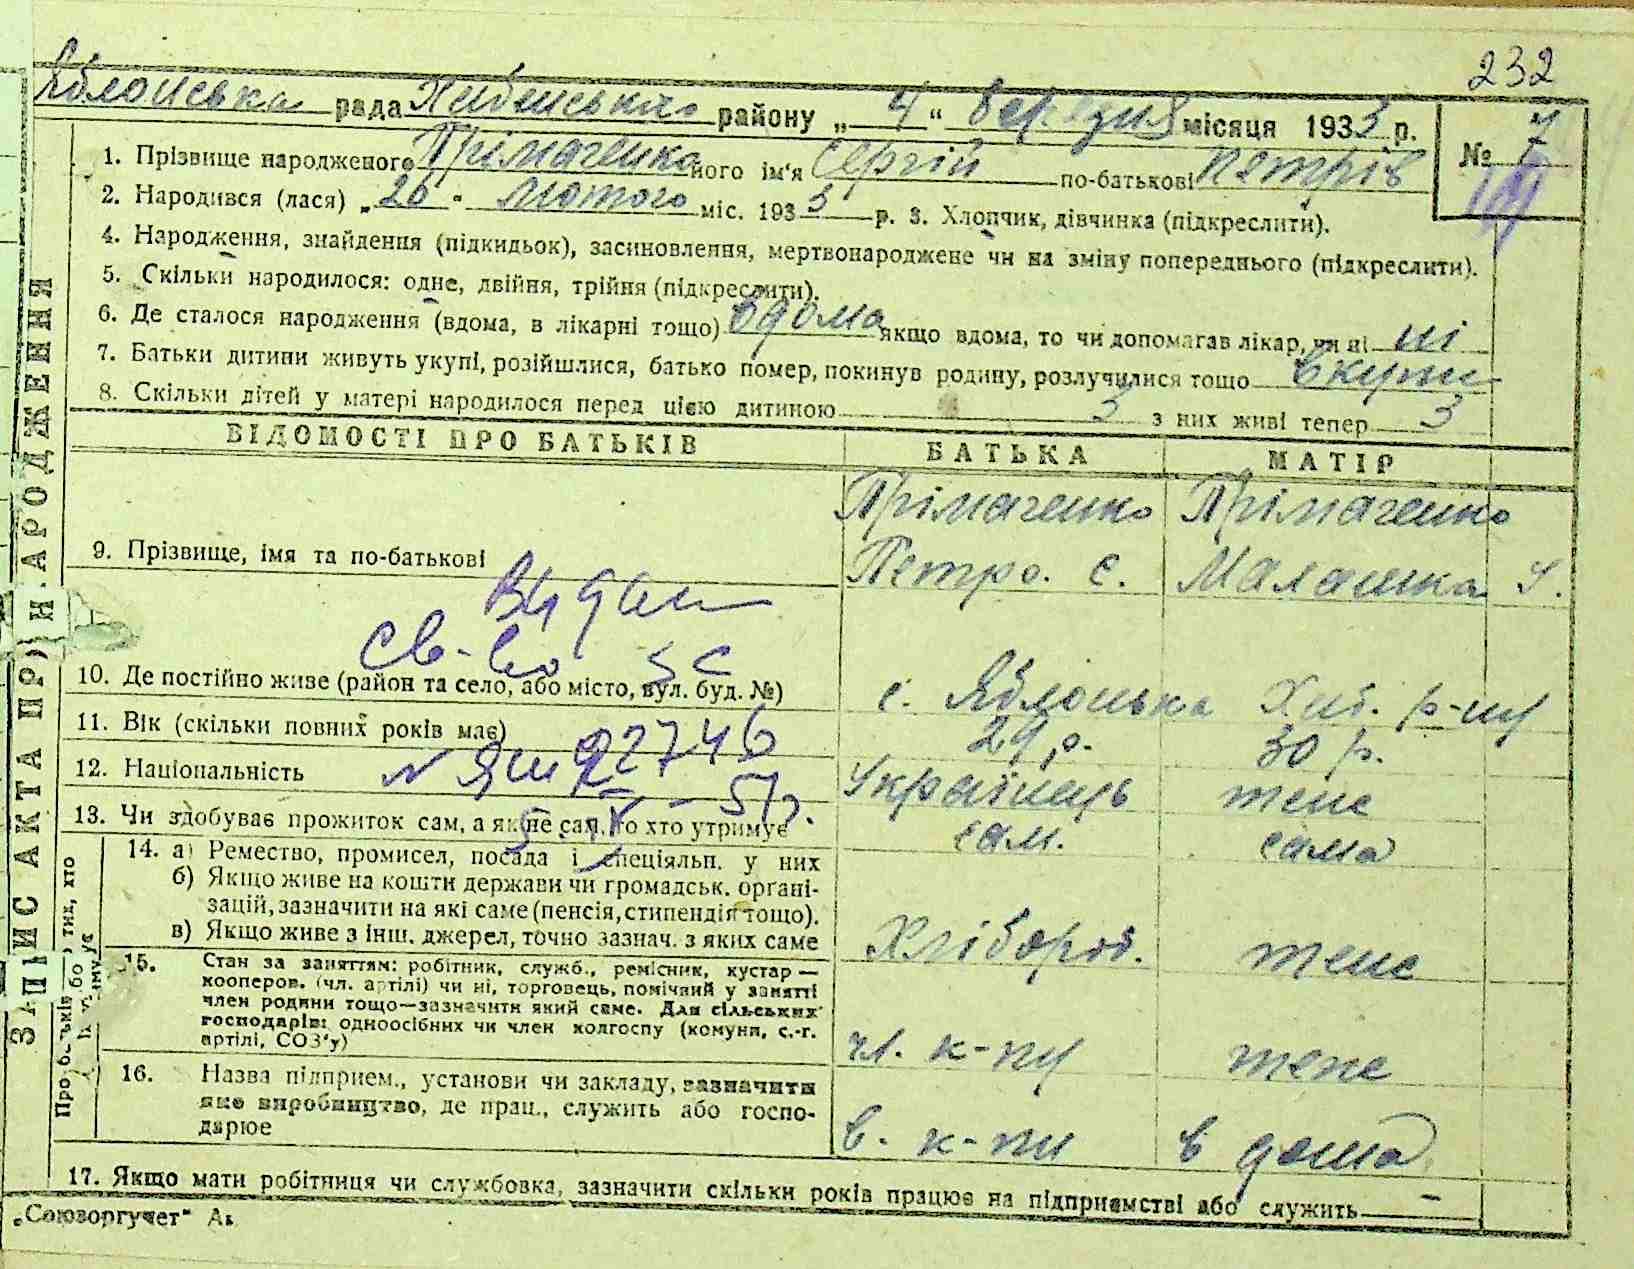 232
Яблонська рада Хабенського району „4“ березня місяця 1933 р.
№ 7
1. Прізвище народженого Прімаченко його ім'я Сергій по-батькові Петрів
2. Народився (лася) „26“ лютого міс. 1933 р. 3. Хлопчик, дівчинка (підкреслити).
4. Народження, знайдення (підкидьок), засиновлення, мертвонароджене чи на зміну попереднього (підкреслити).
5. Скільки народилося: одне, двійня, трійня (підкреслити).
6. Де сталося народження (вдома, в лікарні тощо) вдома якщо вдома, то чи допомагав лікар, чи ні ні
7. Батьки дитини живуть укупі, розійшлися, батько помер, покинув родину, розлучилися тощо вкупи
8. Скільки дітей у матері народилося перед цією дитиною 3 з них живі тепер 3
ЗАПИС АКТА ПРО НАРОДЖЕННЯ
ВІДОМОСТІ ПРО БАТЬКІВ БАТЬКА МАТІР
9. Прізвище, імя та по-батькові
Прімаченко Петро. Є.
Прімаченко Малашка У.
Видан
св-во
10. Де постійно живе (район та село, або місто, вул. буд. №) с. Яблонька Хаб. р-ну
11. Вік (скільки повних років має) 29 р. 30 р.
22746
12. Національність Українець теже
13. Чи здобуває прожиток сам, а як не сам, то хто утримує сам. сама
14. а) Ремество, промисел, посада і спеціяльн. у них
б) Якщо живе на кошти держави чи громадськ. органі-
зацій, зазначити на які саме (пенсія, стипендія тощо).
в) Якщо живе з інш. джерел, точно зазнач. з яких саме Хлібороб. теже
15. Стан за заняттям: робітник, служб., ремісник, кустар —
кооперов. (чл. артілі) чи ні, торговець, помічний у занятті
член родини тощо—зазначити який саме. Для сільських
господарів: одноосібних чи член колгоспу (комуни, с.-г.
артілі, СОЗ'у) чл. к-пу теже
16. Назва підприєм., установи чи закладу, зазначити
яке виробництво, де прац., служить або госпо-
дарює в. к-пи в дома
17. Якщо мати робітниця чи службовка, зазначити скільки років працює на підприємстві або служить —
„Союзоргучет“